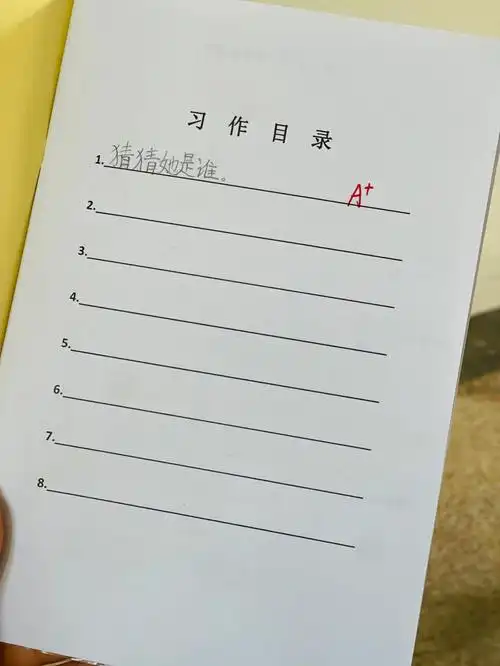 习作目录
1.猜猜她是谁。 A+
2.
3.
4.
5.
6.
7.
8.